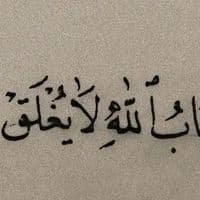 ابُ ٱللهِ لَا يُغْلَقْ